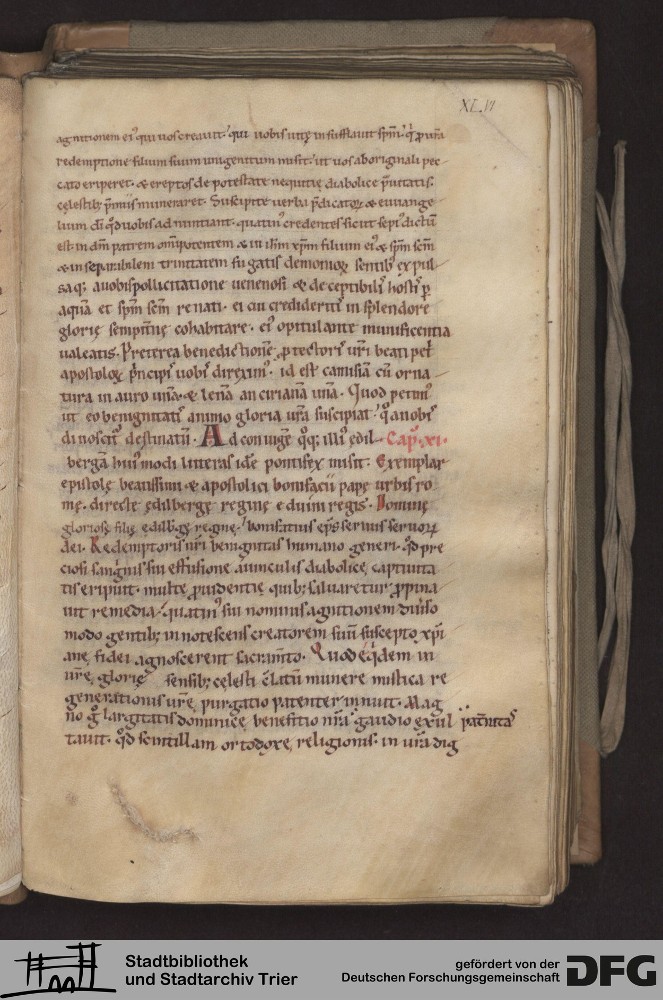 XLVI
agnitionem ei᷒ qui uos creauit. qui uobis uitę insufflauit sp̄m. q̄ p̱ ur̄a
redemptione filium suum unigenitum misit. ut uos ab originali pec
cato eriperet. & ereptos de potestate nequitię diabolice p̄uitatis.
cęlestib; p̄miis muneraret. Suscipite uerba p̄dicatoꝝ & euuange
lium dī qd̄ uobis adnuntiant. quatin᷒ credentes sicut sepi᷒ dictū
est in dm̄ patrem omīpotentem & in ih̄m xp̄m filium ei᷒ & sp̄m sc̄m
& inseparabilem trinitatem fugatis demonioꝝ sensib᷒ expul
saq; a uobis pollicitatione uenenosi & deceptibil᷒ hosti᷒ p̱
aquā et sp̄m sc̄m renati. ei cui credideriti᷒ in splendore
glorię sempit̄nę cohabitare. ei᷒ opitulante munificentia
ualeatis. Preterea benedictionē p̱tectori᷒ ur̄i beati pet᷒
apostoloꝝ p̄ncipi᷒ uobi᷒ direxim᷒. id est camisiā cū orna
tura in auro unā. & lenā ancirianā unā. Quod petim᷒
ut eo benignitati᷒ animo gloria ur̄a suscipiat. q̊ a nobi᷒
di noscit᷒ destinatū. Ad coniugē q̊q; illi᷒ edil Cap̄. xi.
bergā hui᷒modi litteras idē pontifex misit. Exemplar
epistolę beatissimi & apostolici bonifacii papę urbis ro
mę. directe ędilbergę reginę eduini regis. Dominę
gloriosę filię edilb̄gę reginę. bonifatius ep̄s seruus seruoꝝ
dei. Redemptoris nr̄i benignitas humano generi. qd̄ pre
ciosi sanguinis sui effusione a uinculis diabolicę captiuita
tis eripuit. multę p̱uidentię quib; saluaretur p̱pina
uit remedia. quatin᷒ sui nominis agnitionem diuerso
modo gentib; innotescens creatorem suū suscepto xp̄i
anę fidei agnoscerent sacram̄to. Quod eq̇dem in
ur̄e glorię sensib; celesti c̄latū munere mistica re
generationis ur̄e, purgatio patenter innuit. Mag
no g̊ largitatis dominicę, benefitio nr̄a gaudio exul pat̄nitas
tauit. qd̄ scintillam ortodoxę, religionis. in ur̄a dig
Stadtbibliothek
und Stadtarchiv Trier
gefördert von der
Deutschen Forschungsgemeinschaft
DFG